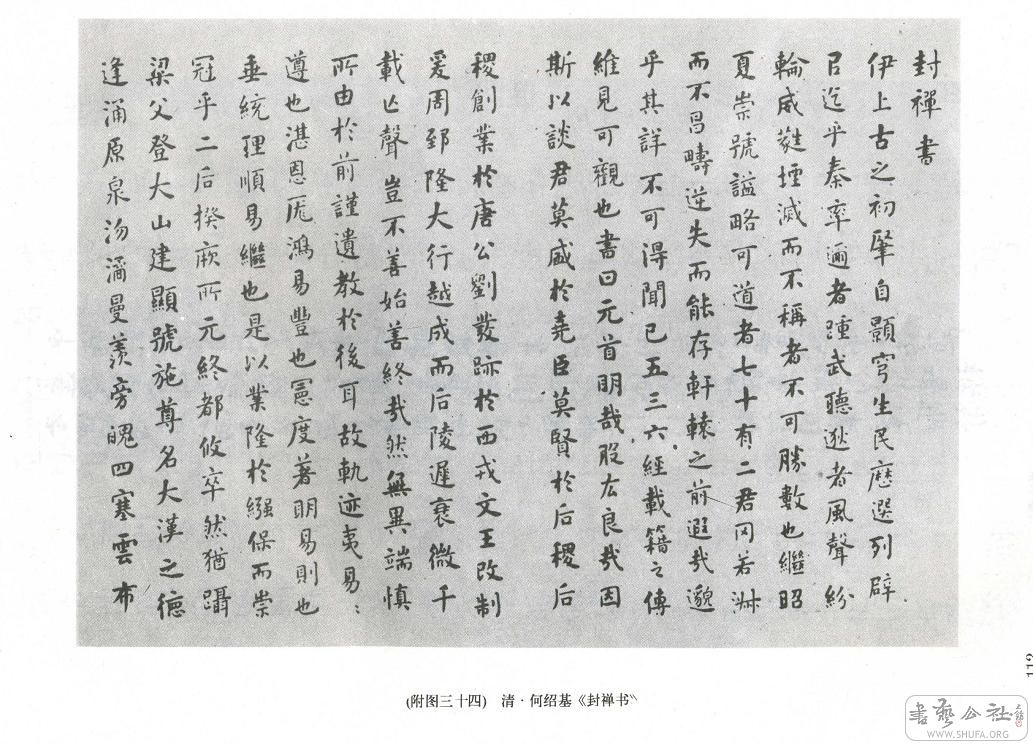 封禪書
伊上古之初肇自顥穹生民歷選列辟
㠯迄乎秦率邇者踵武聽逖者風聲紛
輪威蕤堙滅而不稱者不可勝數也繼昭
夏崇號謚略可道者七十有二君罔若淑
而不昌疇逆失而能存軒轅之前遐哉邈
乎其詳不可得聞已五三六經載籍之傳
維見可觀也書曰元首明哉股厷良哉因
斯以談君莫盛於堯臣莫賢於后稷后
稷創業於唐公劉發跡於西戎文王改制
爰周郅隆大行越成而后陵遲衰微千
載亾聲豈不善始善終哉然無異端慎
所由於前謹遺教於後耳故軌迹夷易:
遵也湛恩厖鴻易豐也憲度著明易則也
垂統理順易繼也是以業隆於繈保而崇
冠乎二后揆厥所元終都攸卒然猶躡
梁父登大山建顯號施尊名大漢之德
逢涌原泉沕潏曼羨旁魄四塞雲布
(附图三十四) 清·何绍基《封禅书》
112
書藝公社
WWW.SHUFA.ORG